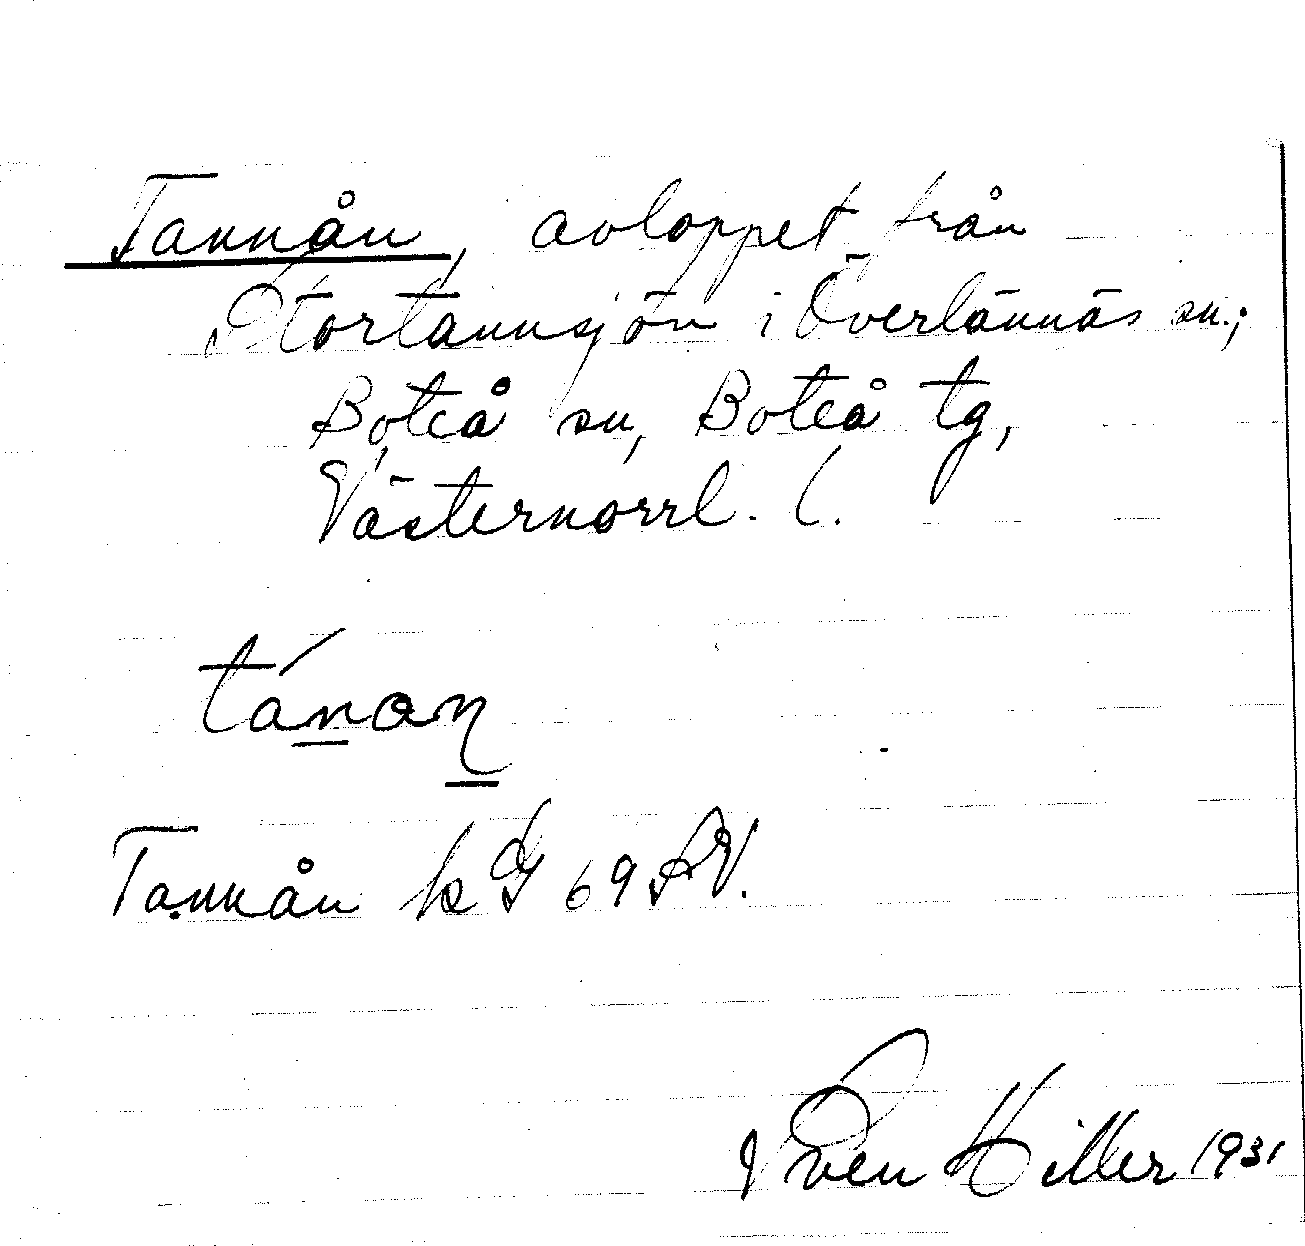 Tannån, avloppet från
Stortannsjön i Överlännäs sn.;
Boteå sn, Boteå tg,
Västernorrl. l.
tánan
Tannån k G 69 SV.
Sven Hiller 1931